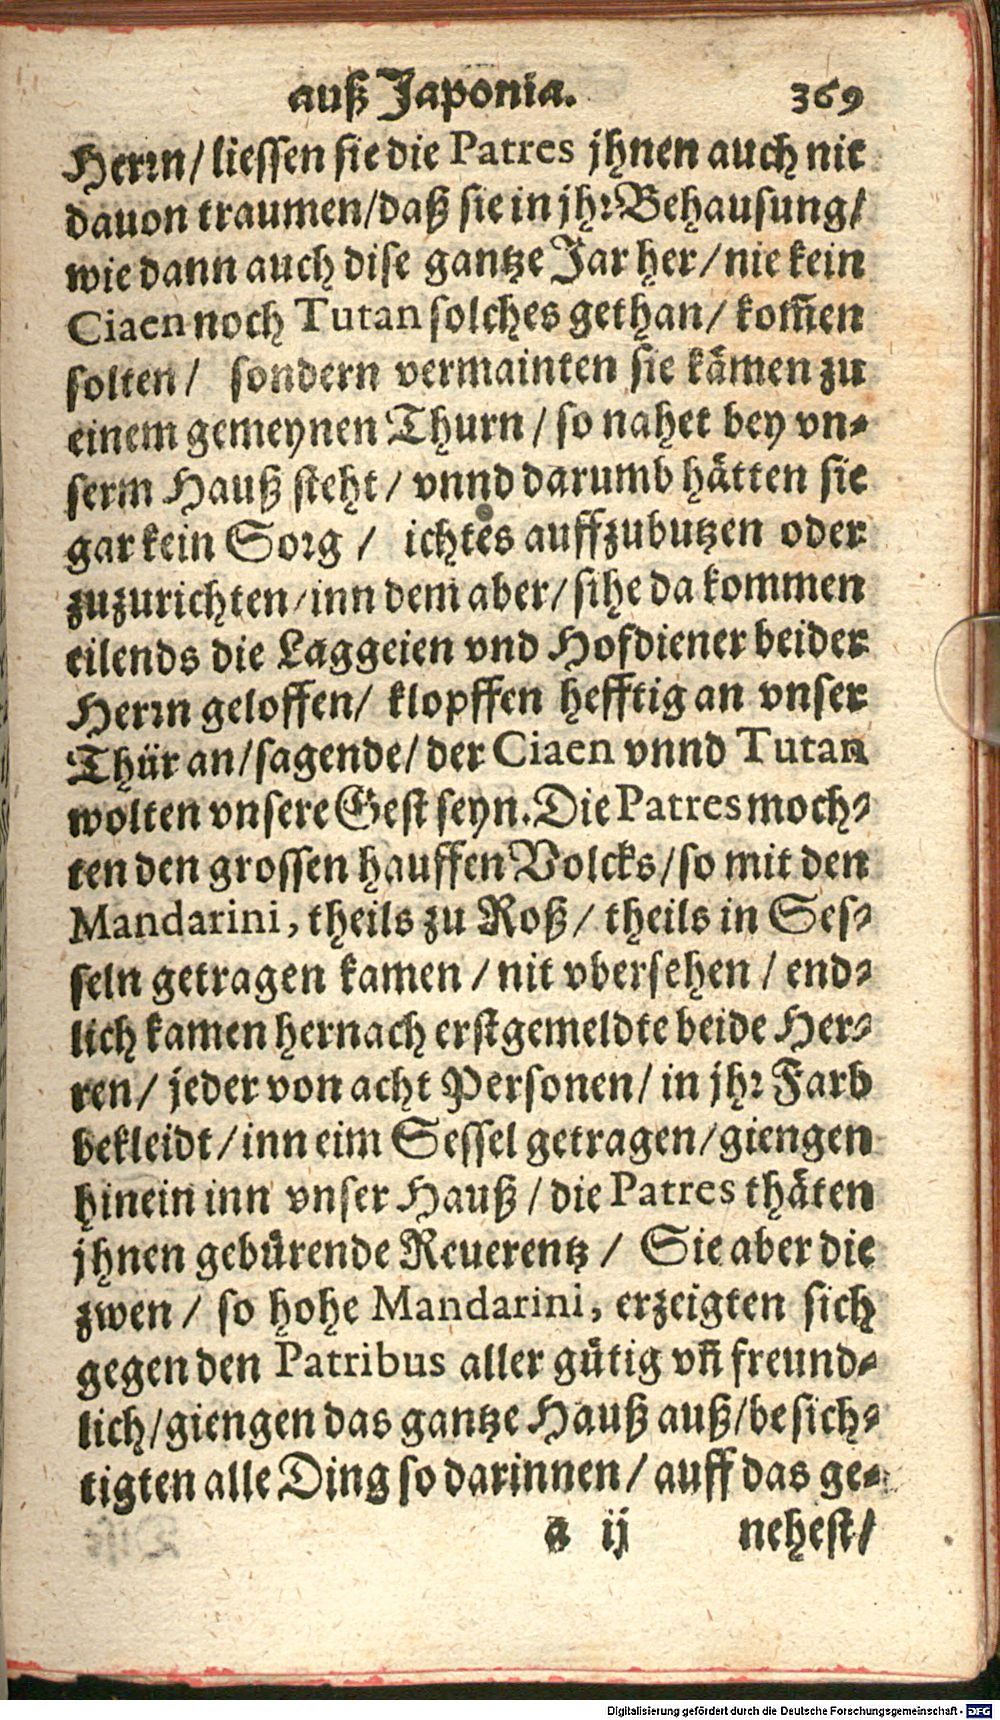 auß Japonia. 369
Herꝛn/ liessen sie die Patres jhnen auch nit
dauon traumen/daß sie in jhꝛ Behausung/
wie dann auch dise gantze Jar her/ nie kein
Ciaen noch Tutan solches gethan/ kom̃en
solten/ sondern vermainten sie kämen zu
einem gemeynen Thurn/ so nahet bey vn⸗
serm Hauß steht/ vnnd darumb hätten sie
gar kein Soꝛg/ ichtes auffzubutzen oder
zuzurichten/inn dem aber/ sihe da kommen
eilends die Laggeien vnd Hofdiener beider
Herꝛn geloffen/ klopffen hefftig an vnser
Thür an/sagende/ der Ciaen vnnd Tutan
wolten vnsere Gest seyn. Die Patres moch⸗
ten den grossen hauffen Volcks/so mit den
Mandarini, theils zu Roß/ theils in Ses⸗
seln getragen kamen/ nit vbersehen/ end⸗
lich kamen hernach erstgemeldte beide Her⸗
ren/ jeder von acht Personen/ in jhꝛ Farb
bekleidt/inn eim Sessel getragen/giengen
hinein inn vnser Hauß/ die Patres thäten
jhnen gebürende Reuerentz/ Sie aber die
zwen/ so hohe Mandarini, erzeigten sich
gegen den Patribus aller gütig vñ freund⸗
lich/giengen das gantze Hauß auß/besich⸗
tigten alle Ding so darinnen/ auff das ge⸗
a ij nehest/
Digitalisierung gefördert durch die Deutsche Forschungsgemeinschaft - DFG